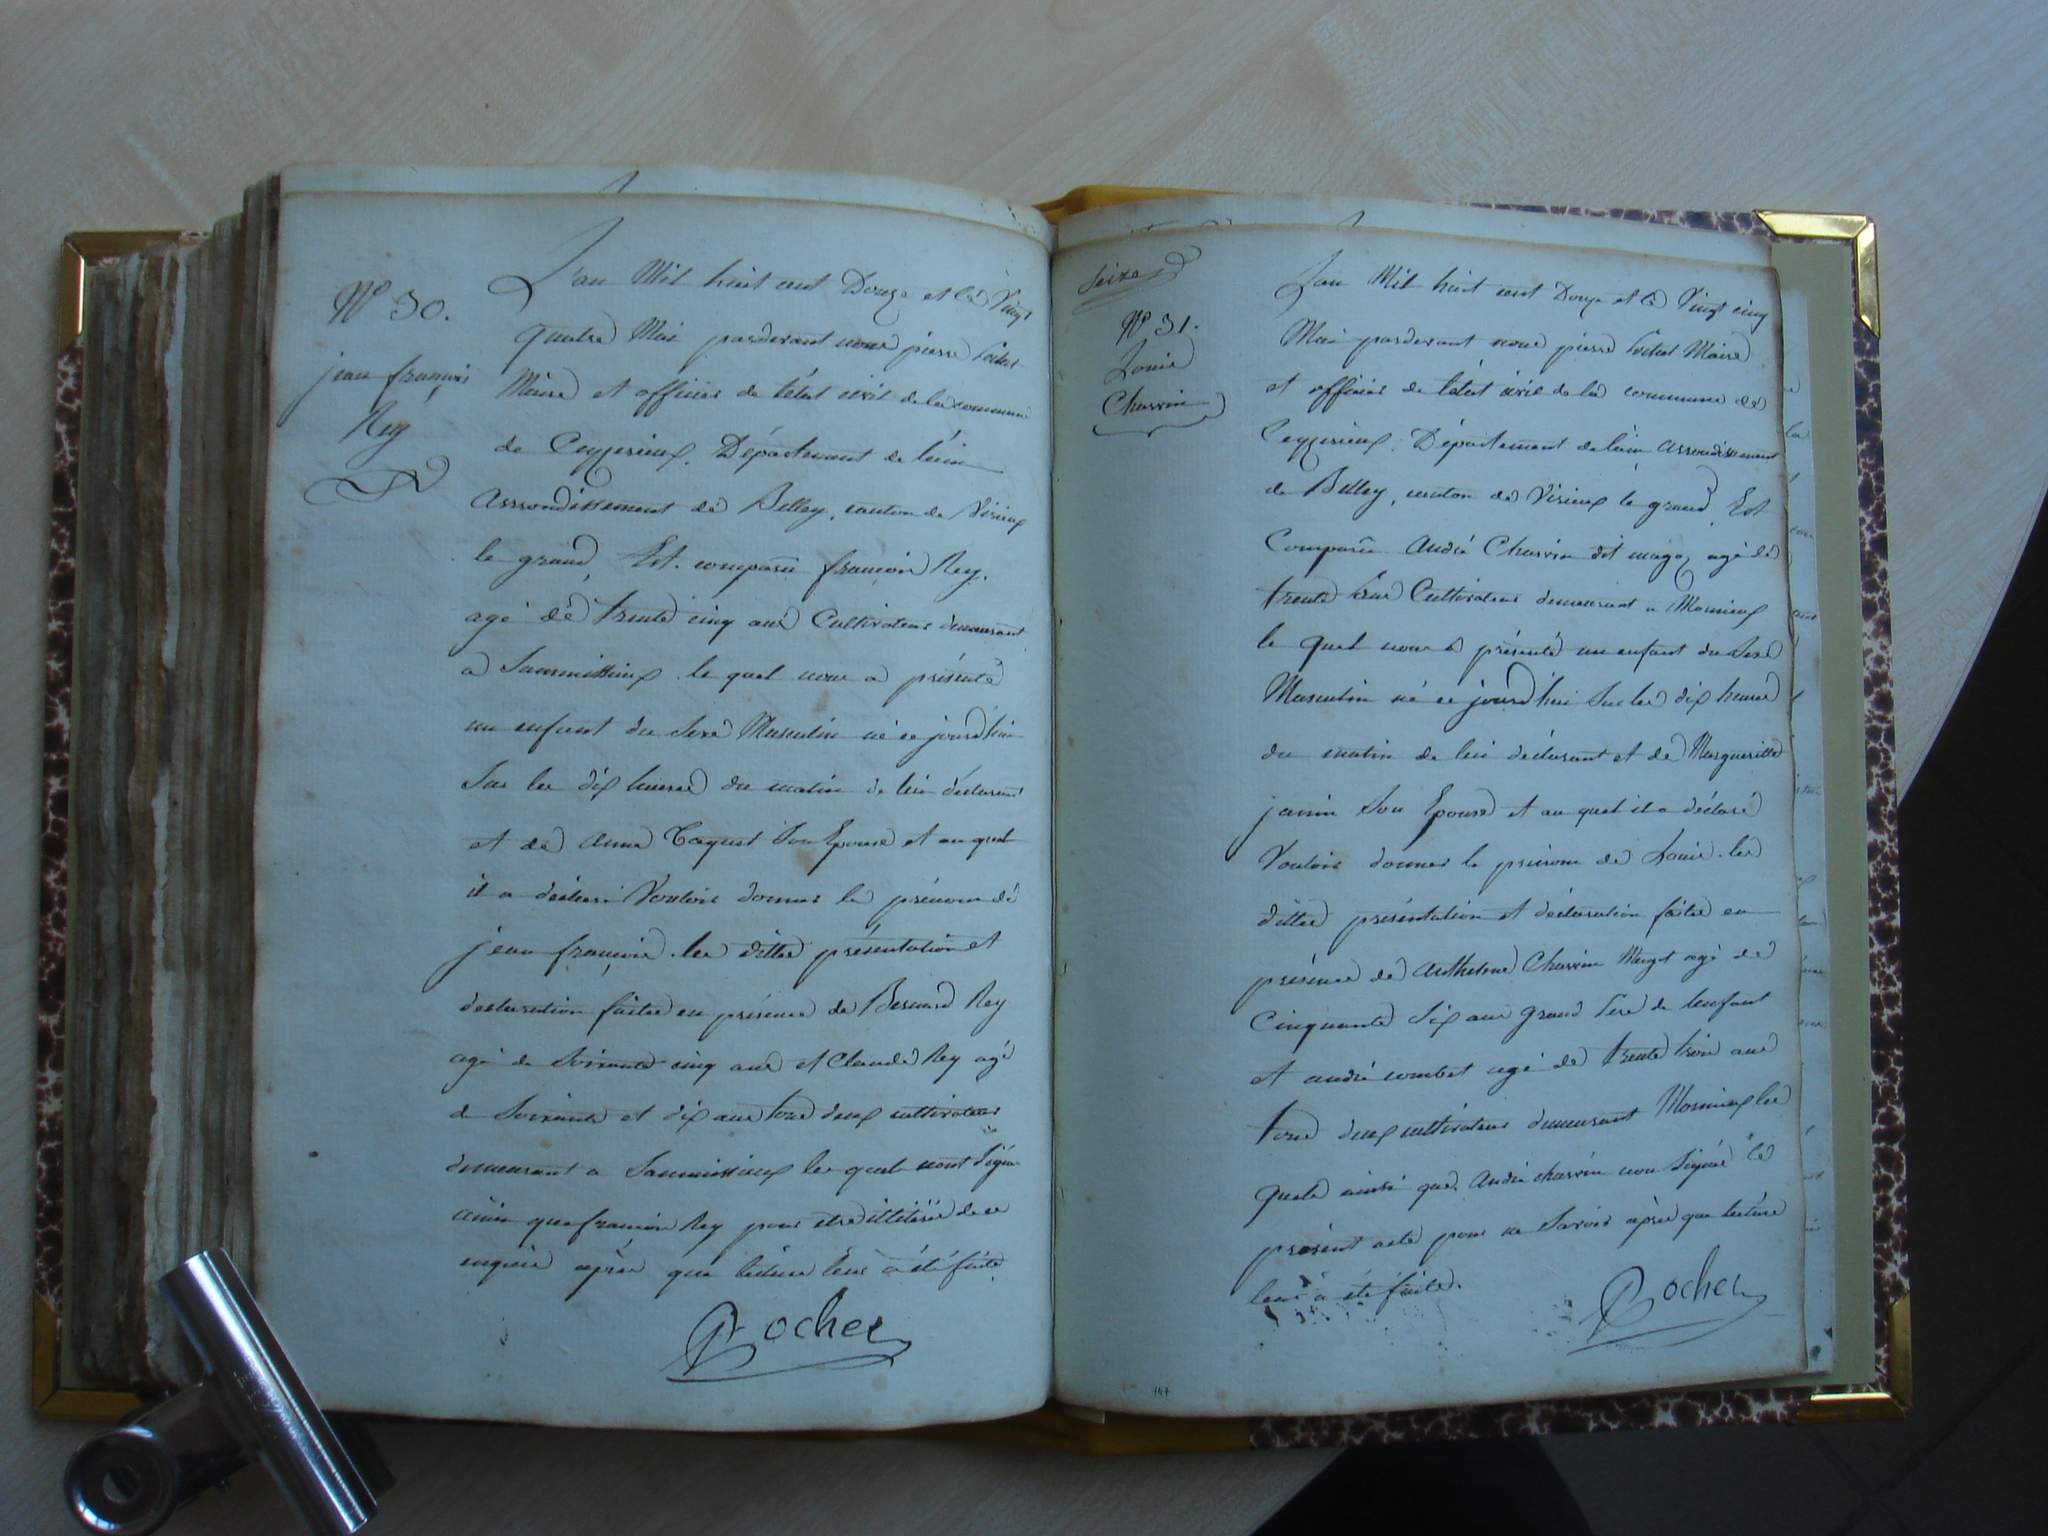 N° 30.
jean françois
Rey
L'an Mil huit cent Douze et le Vingt
quatre Mai pardevant nous pierre
Maire et officier de l'état civil de la commune
de Ceyzerieux, Département de l'ain
Arrondissement de Belley, canton de Virieux
le grand, Est comparu françois Rey,
agé de trente cinq ans Cultivateur demeurant
a le quel nous a présenté
un enfant du Sexe Masculin né ce jourd'hui
Sur les dix heures du matin de lui déclarant
et de Anne Son Epouse et au quel
il a déclaré Vouloir donner le prénom de
jean françois. les dittes présentation et
declaration faites en présence de Bernard Rey
agé de Soixante cinq ans et Claude Rey agé
de Soixante et dix ans tous deux cultivateurs
demeurant a les quels nont Signé
ainsi que françois Rey pour etre illitéré de ce
enquis après que lecture leur a été faite
Rochex
Seize
N° 31.
Louis
Charvin
L'an Mil huit cent Douze et le Vingt cinq
Mai pardevant nous pierre Maire
et officier de l'état civil de la commune de
Ceyzerieux, Département de l'ain arrondissement
de Belley, canton de Virieux le grand, Est
Comparu André Charvin dit agé de
trente Cultivateur demeurant a Mornieux
le quel nous a présenté un enfant du Sexe
Masculin né ce jourd'hui Sur les dix heures
du matin de lui déclarant et de Margueritte
janin Son Epouse et au quel il a déclaré
Vouloir donner le prénom de Louis. les
dittes présentation et déclaration faites en
présence de Anthelme Charvin agé de
Cinquante Six ans grand Père de l'enfant
et andré combet agé de trente trois ans
tous deux cultivateurs demeurant Mornieux les
quels ainsi que André charvin non Signé le
présent acte pour ne Savoir après que lecture
leur a été faite.
Rochex
147